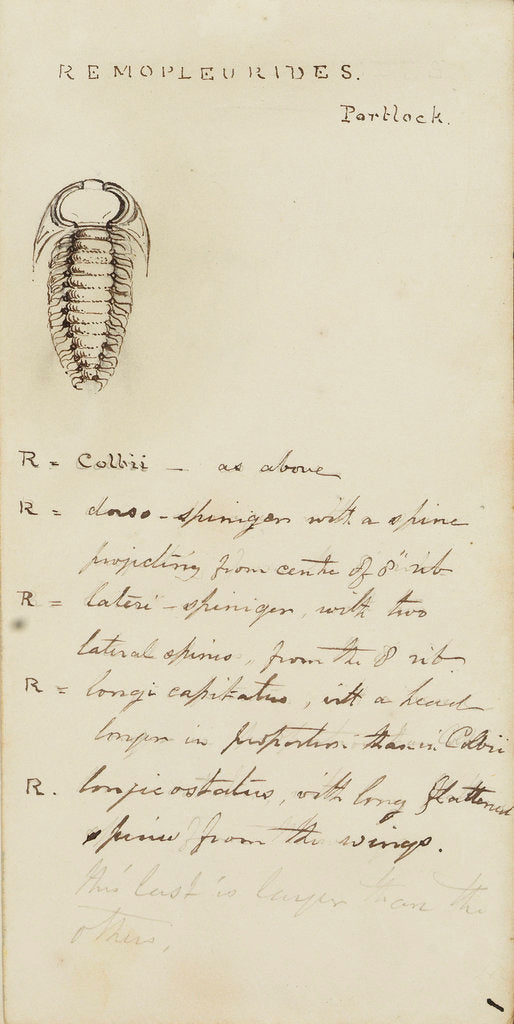 REMOPLEURIDES.
Portlock.
R = Colbii – as above
R = dorso-spiniger with a spine
projecting from centre of 8" rib
R = lateri-spiniger, with two
lateral spines, from the 8 rib
R = longi capitatus, with a head
longer in proportion than in Colbii
R. longicostatus, with long flattened
spines from the wings.
this last is larger than the
others.